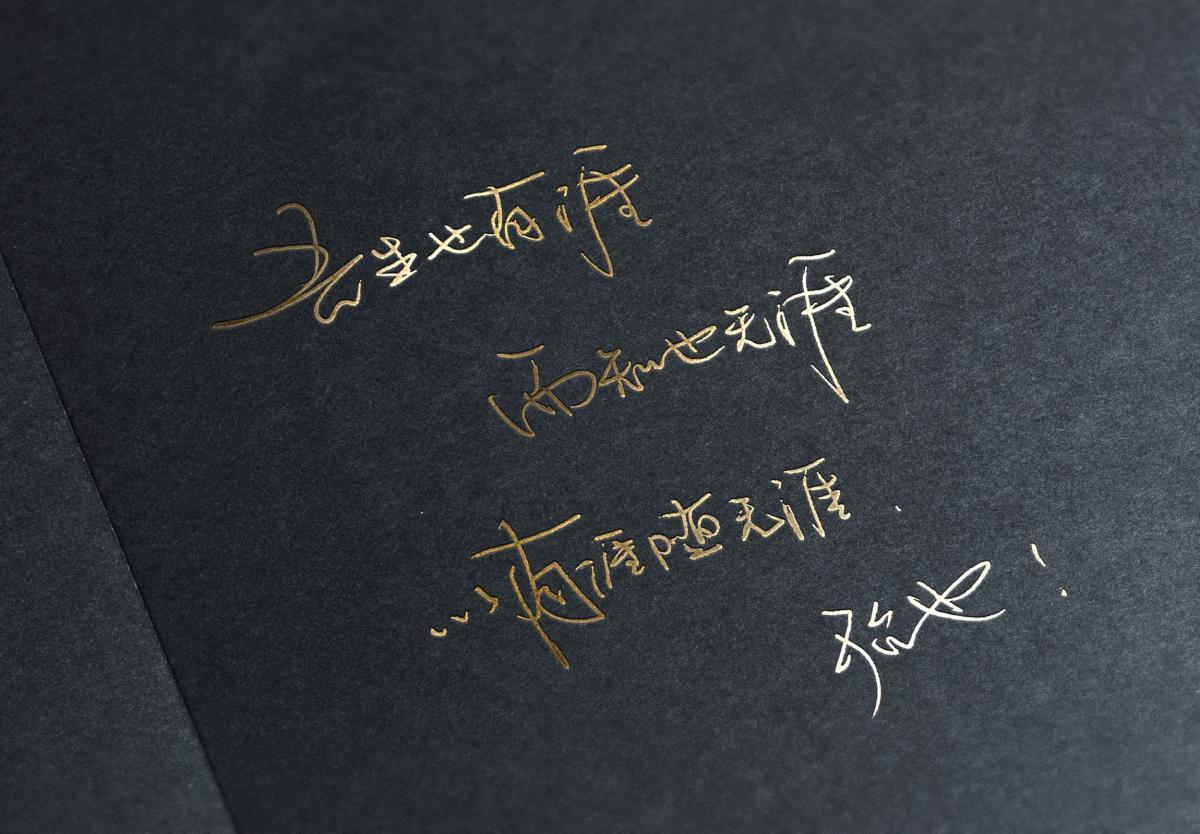 吾生也有涯
而知也无涯
以有涯随无涯.
殆也!